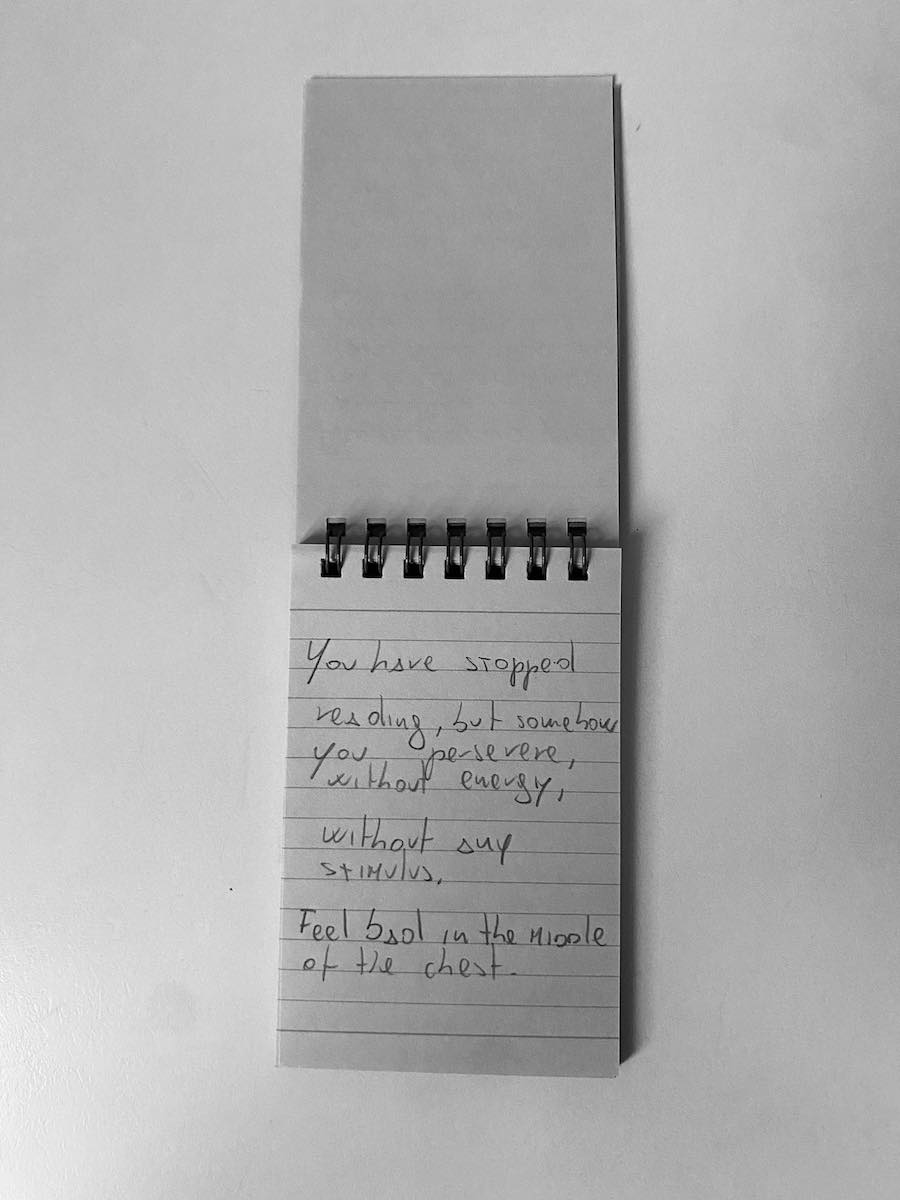 You have stopped
reading, but somehow
you persevere,
without energy,
without any
stimulus.
Feel bad in the middle
of the chest.